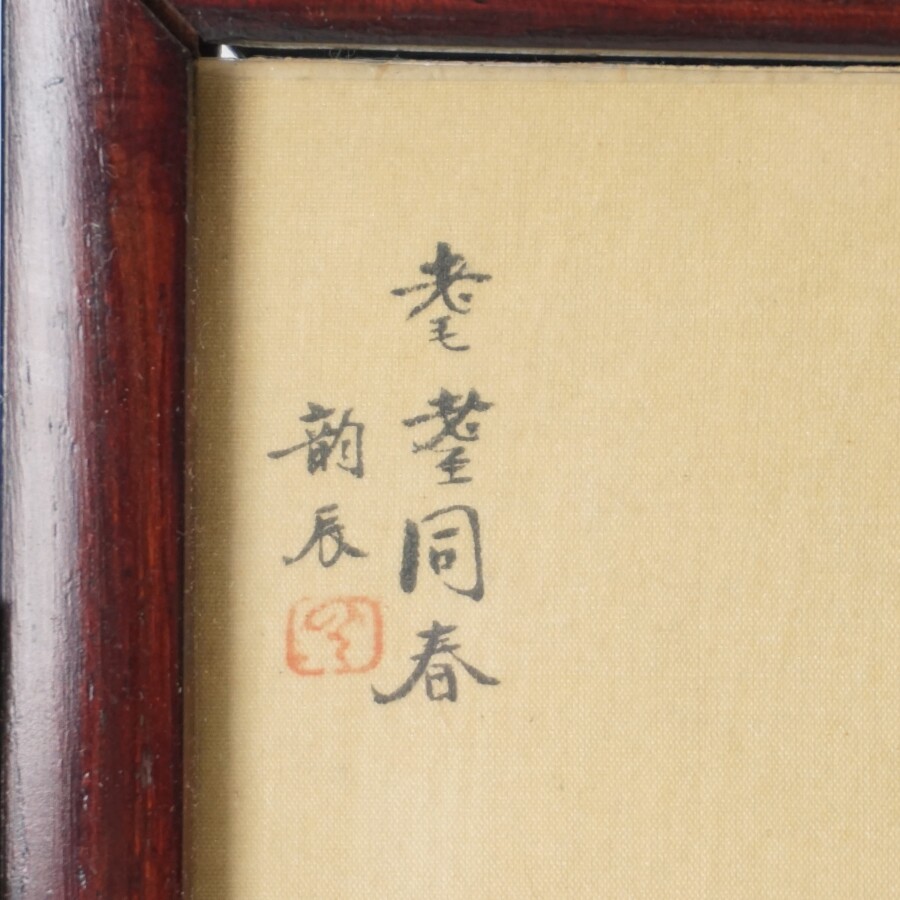 耄耋同春
韵辰